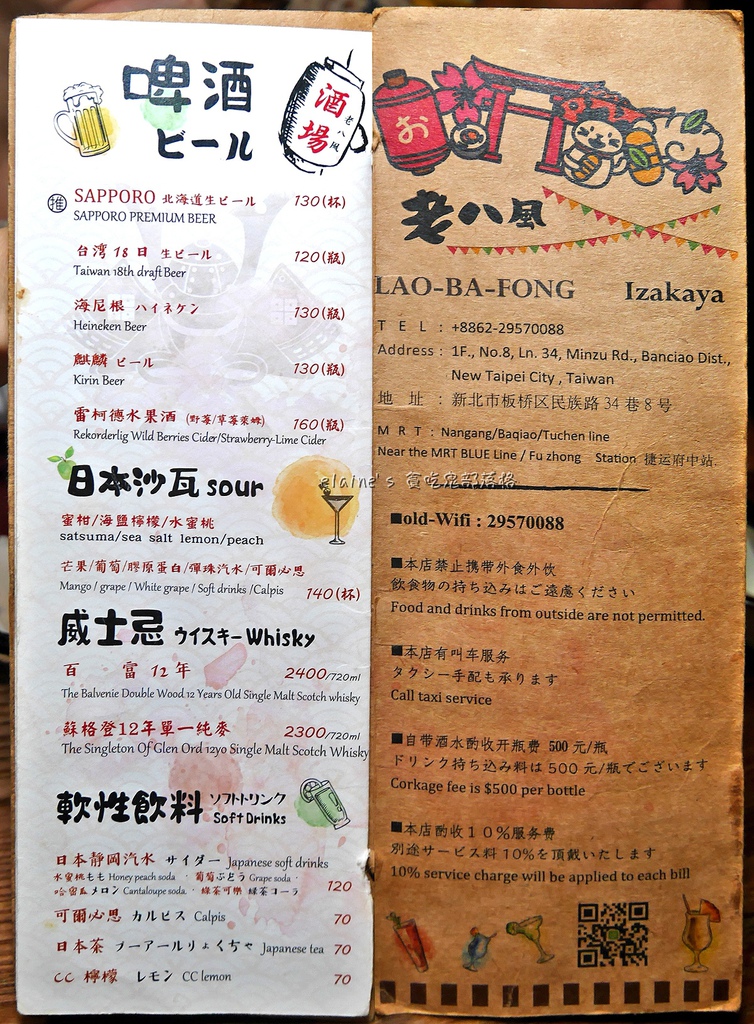 啤酒
ビール
酒場
老八風
推
SAPPORO 北海道生ビール 130(杯)
SAPPORO PREMIUM BEER
台湾 18 日 生ビール 120(瓶)
Taiwan 18th draft Beer
海尼根 ハイネケン 130(瓶)
Heineken Beer
麒麟 ビール 130(瓶)
Kirin Beer
雷柯德水果酒 (野莓/草莓萊姆) 160(瓶)
Rekorderlig Wild Berries Cider/Strawberry-Lime Cider
日本沙瓦 sour
蜜柑/海鹽檸檬/水蜜桃
satsuma/sea salt lemon/peach
芒果/葡萄/膠原蛋白/彈珠汽水/可爾必思
Mango / grape / White grape / Soft drinks / Calpis 140(杯)
威士忌 ウイスキー Whisky
百 富 12 年 2400/720ml
The Balvenie Double Wood 12 Years Old Single Malt Scotch whisky
蘇格登12年單一純麥 2300/720ml
The Singleton Of Glen Ord 12yo Single Malt Scotch Whisky
軟性飲料 ソフトトリンク
Soft Drinks
日本靜岡汽水 サイダー Japanese soft drinks
水蜜桃もも Honey peach soda · 葡萄ぶどう Grape soda ·
哈密瓜メロン Cantaloupe soda · 綠茶可樂 綠茶コーラ 120
可爾必思 カルピス Calpis 70
日本茶 プーアールりょくちゃ Japanese tea 70
CC 檸檬 レモン CC lemon 70
お
老八風
LAO-BA-FONG Izakaya
TEL : +8862-29570088
Address : 1F., No.8, Ln. 34, Minzu Rd., Banciao Dist.,
New Taipei City , Taiwan
地 址 : 新北市板桥区民族路 34 巷 8 号
MRT : Nangang/Baqiao/Tuchen line
Near the MRT BLUE Line / Fu zhong Station 捷运府中站.
elaine's 貪吃鬼部落格
■old-Wifi : 29570088
■本店禁止携带外食外饮
飲食物の持ち込みはご遠慮ください
Food and drinks from outside are not permitted.
■本店有叫车服务
タクシー手配も承ります
Call taxi service
■自带酒水酌收开瓶费 500 元/瓶
ドリンク持ち込み料は 500 元/瓶でございます
Corkage fee is $500 per bottle
■本店酌收10%服务费
別途サービス料 10%を頂戴いたします
10% service charge will be applied to each bill